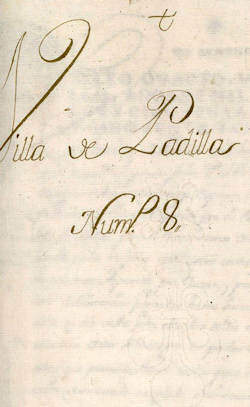 Villa de Padilla
Num.º 8.